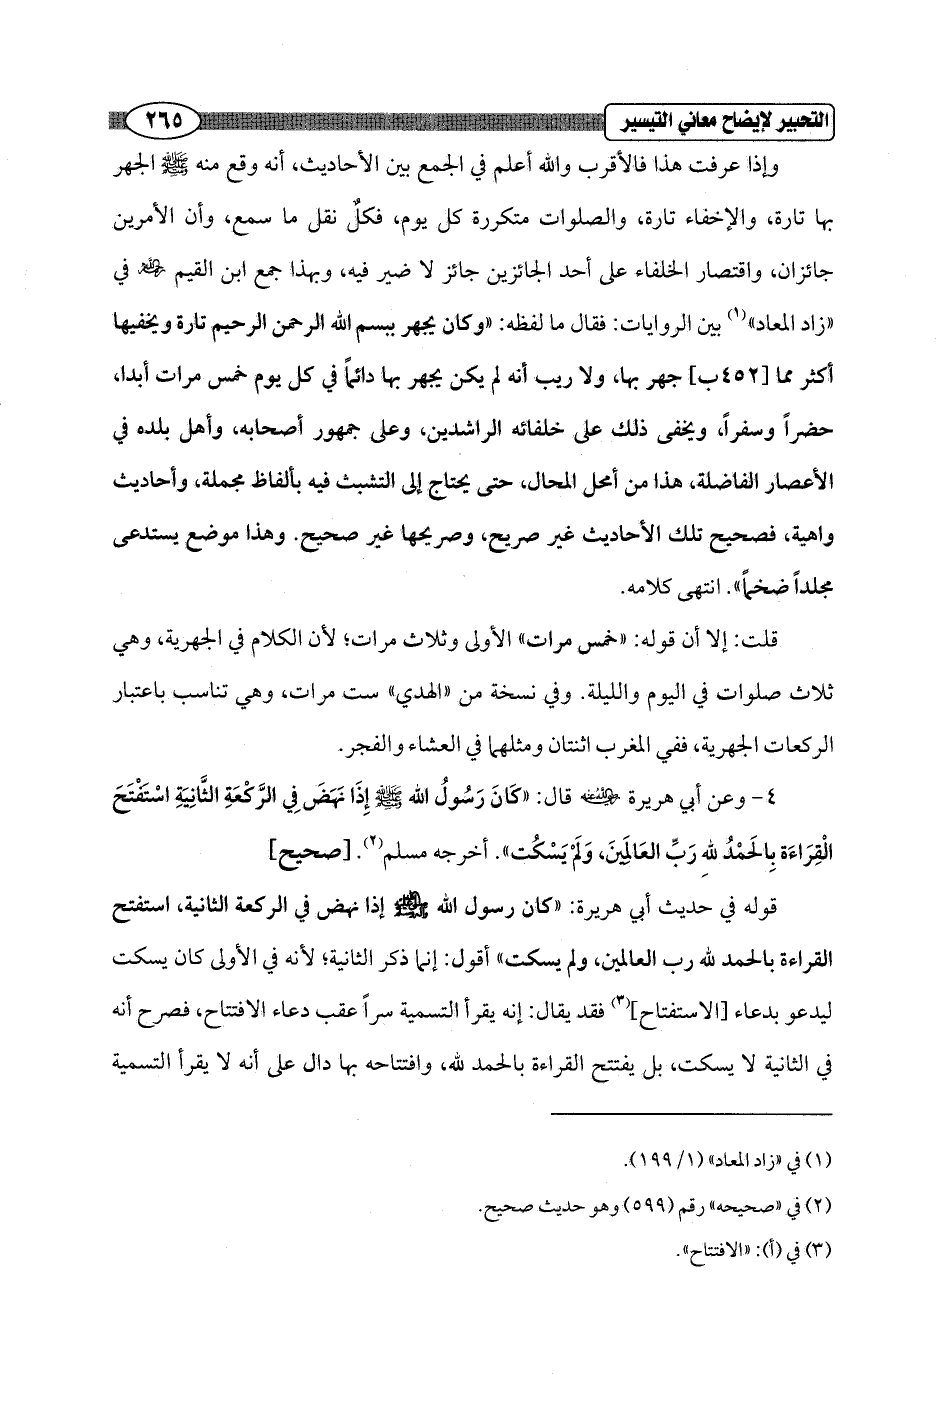 التحبير لإيضاح معاني التيسير ٢٦٥
وإذا عرفت هذا فالأقرب والله أعلم في الجمع بين الأحاديث، أنه وقع منه ﷺ الجهر
بها تارة، والإخفاء تارة، والصلوات متكررة كل يوم، فكلٌ نقل ما سمع، وأن الأمرين
جائزان، واقتصار الخلفاء على أحد الجائزين جائز لا ضير فيه، وبهذا جمع ابن القيم رحمه الله في
«زاد المعاد»(١) بين الروايات: فقال ما لفظه: «وكان يجهر ببسم الله الرحمن الرحيم تارة ويخفيها
أكثر مما [٤٥٢ب] جهر بها، ولا ريب أنه لم يكن يجهر بها دائماً في كل يوم خمس مرات أبدا،
حضراً وسفراً، ويخفى ذلك على خلفائه الراشدين، وعلى جمهور أصحابه، وأهل بلده في
الأعصار الفاضلة، هذا من أمحل المحال، حتى يحتاج إلى التشبث فيه بألفاظ مجملة، وأحاديث
واهية، فصحيح تلك الأحاديث غير صريح، وصريحها غير صحيح. وهذا موضع يستدعى
مجلداً ضخماً». انتهى كلامه.
قلت: إلا أن قوله: «خمس مرات» الأولى وثلاث مرات؛ لأن الكلام في الجهرية، وهي
ثلاث صلوات في اليوم والليلة. وفي نسخة من «الهدي» ست مرات، وهي تناسب باعتبار
الركعات الجهرية، ففي المغرب اثنتان ومثلهما في العشاء والفجر.
٤- وعن أبي هريرة رضي الله عنه قال: «كَانَ رَسُولُ الله ﷺ إِذَا نَهَضَ فِي الرَّكْعَةِ الثَّانِيَةِ اسْتَفْتَحَ
الْقِرَاءَة بِالْحَمْدُ لله رَبِّ العَالَمِينَ، وَلَمْ يَسْكُت». أخرجه مسلم(٢). [صحيح]
قوله في حديث أبي هريرة: «كان رسول الله ﷺ إذا نهض في الركعة الثانية، استفتح
القراءة بالحمد لله رب العالمين، ولم يسكت» أقول: إنما ذكر الثانية؛ لأنه في الأولى كان يسكت
ليدعو بدعاء [الاستفتاح](٣) فقد يقال: إنه يقرأ التسمية سراً عقب دعاء الافتتاح، فصرح أنه
في الثانية لا يسكت، بل يفتتح القراءة بالحمد لله، وافتتاحه بها دال على أنه لا يقرأ التسمية
(١) في «زاد المعاد» (١/ ١٩٩).
(٢) في «صحيحه» رقم (٥٩٩) وهو حديث صحيح.
(٣) في (أ): «الافتتاح».